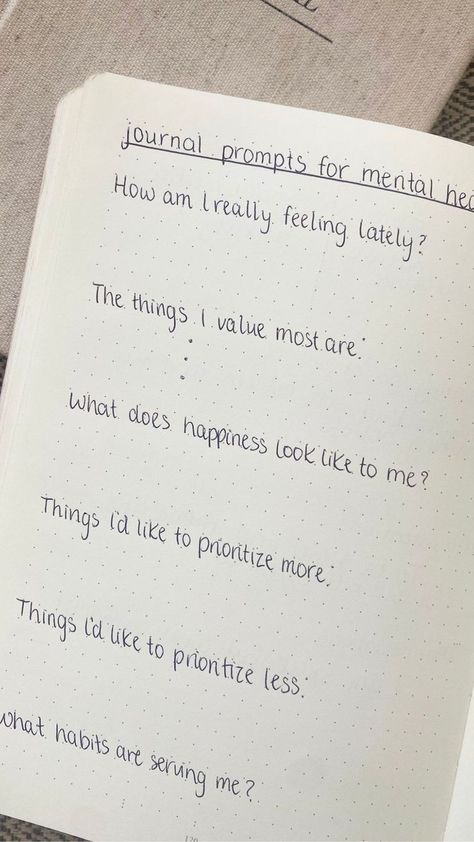 journal prompts for mental
How am I really feeling lately?
The things I value most are:
What does happiness look like to me?
Things I'd like to prioritize more:
Things I'd like to prioritize less:
what habits are serving me?